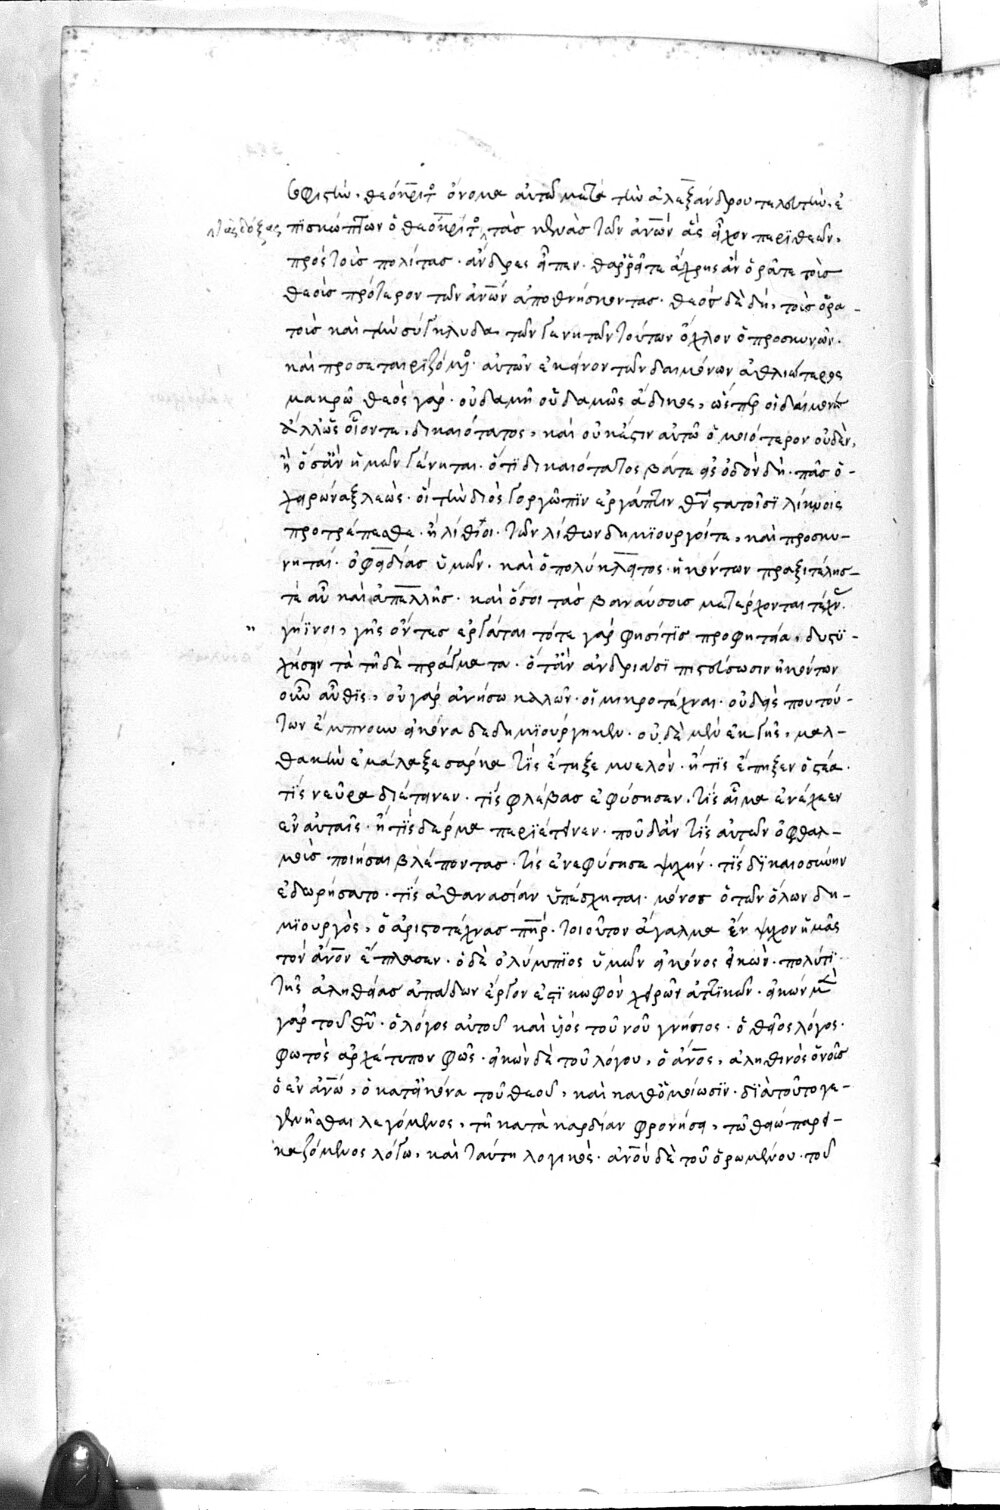 σοφιστὴν. θεόκριτος ὄνομα αὐτῶ μετὰ τὴν ἀλεξάνδρου τελευτὴν. ἐ
πισκώπτων ὁ θεόκριτος τὰς κενὰς τῶν ἀνων ἃς εἶχον περὶ θεῶν,
τὰς δόξας
πρὸς τοὺς πολίτας. ἄνδρες εἶπεν. θαρρεῖτε ἄχρις ἂν ὁρᾶτε τοὺς
θεοὺς πρότερον τῶν ἀνων ἀποθνήσκοντας. θεοὺς δὲ δὴ, τοὺς ὁρα-
τοὺς καὶ τὸν σύγκλυδα τῶν γενητῶν τούτων ὄχλον ὁ προσκυνῶν.
καὶ προσεταιριζόμενος. αὐτῶν ἐκείνων τῶν δαιμόνων ἀθλιώτερος
μακρῶ θεὸς γὰρ. οὐδαμῆ οὐδαμῶς ἄδικος, ὥσπερ οἱ δαίμονες
ἀλλ' ὡς οἷόν τε, δικαιότατος, καὶ οὐκ ἔστιν αὐτῶ ὁμοιότερον οὐδὲν,
ἢ ὃς ἂν ἡμῶν γένηται. ὅτι δικαιότατος βᾶτε εἰς ὁδὸν δὴ. πᾶς ὁ
χειρώναξ λεὼς. οἳ τὴν διὸς γοργῶπιν ἐργάνην στατοῖσι λίκνοις
προτρέπεσθε. ἠλίθιοι. τῶν λίθων δημιουργοί τε, καὶ προσκυ-
νηταί. ὁ φειδίας ὑμῶν. καὶ ὁ πολύκλειτος. ἡκόντων πραξιτέλης
τὲ αὖ καὶ ἀπελλῆς. καὶ ὅσοι τὰς βαναύσους μετέρχονται τέχνας
γήϊνοι, γῆς ὄντες ἐργάται τότε γάρ φησί τις προφητεία, δυστυ-
χήσειν τὰ τῆδε πράγματα. ὅταν ἀνδριᾶσι πιστεύσωσιν ἡκόντων
οὖν αὖθις, οὐ γὰρ ἀνήσω καλῶν. οἱ μικροτέχναι. οὐδείς που τού-
των ἔμπνουν εἰκόνα δεδημιούργηκεν. οὐδὲ μὴν ἐκ γῆς, μαλ-
θακὴν ἐμάλαξε σάρκα τίς ἔτηξε μυελὸν. ἢ τίς ἔπηξεν ὀστέα.
τίς νεῦρα διέτεινεν. τίς φλέβας ἐφύσησεν. τίς αἷμα ἐνέχεεν
ἐν αὐταῖς. ἢ τίς δέρμα περιέτεινεν. ποῦ δ' ἄν τις αὐτῶν ὀφθαλ-
μοὺς ποιήσαι βλέποντας. τίς ἐνεφύσησε ψυχήν. τίς δικαιοσύνην
ἐδωρήσατο. τίς ἀθανασίαν ὑπέσχηται. μόνος ὁ τῶν ὅλων δη-
μιουργὸς, ὁ ἀριστοτέχνας πηρ. τοιοῦτον ἄγαλμα ἔμψυχον ἡμᾶς
τὸν ἀνον ἔπλασεν. ὁ δὲ ὀλύμπιος ὑμῶν εἰκόνος εἰκὼν. πολύ τι
τῆς ἀληθείας ἀπάδων ἔργον ἐστὶ κωφὸν χειρῶν ἀττικῶν. εἰκὼν μὲν
γὰρ τοῦ θυ. ὁ λόγος αὐτοῦ καὶ υἱὸς τοῦ νοῦ γνήσιος. ὁ θεῖος λόγος.
φωτὸς ἀρχέτυπον φῶς. εἰκὼν δὲ τοῦ λόγου, ὁ ἀνος, ἀληθινὸς ὁ νοῦς
ὁ ἐν ἀνω, ὁ κατ' εἰκόνα τοῦ θεοῦ, καὶ καθ' ὁμοίωσιν. διὰ τοῦτο γε-
γενῆσθαι λεγόμενος, τῆ κατὰ καρδίαν φρονήσει, τῶ θείω παρει-
καζόμενος λόγω, καὶ ταύτη λογικὸς. ἀνου δὲ τοῦ ὁρωμένου. τοῦ